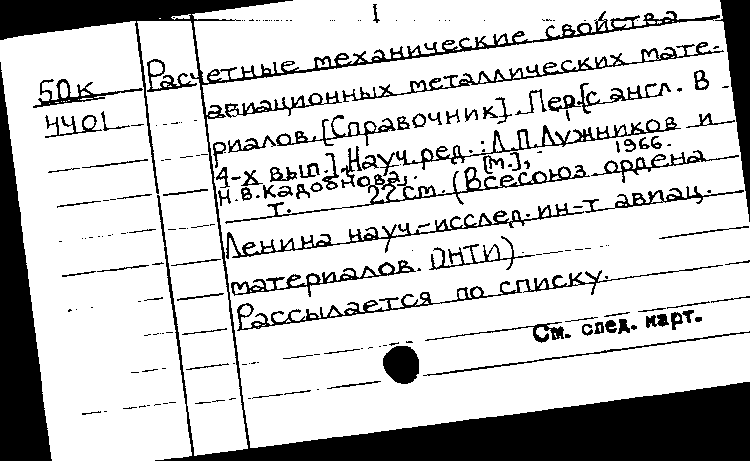 I
50к
4401
Расчетные механические свойства
авиационных металлических мате-
риалов. [Справочник]. Пер. [с англ. В
4-х вып.]. Науч. ред.: Л.П. Лужников и
Н.В. Кадобнова. [М.], 1966.
т. 22см. (Всесоюз. ордена
Ленина науч.-исслед. ин-т авиац.
материалов. ОНТИ)
Рассылается по списку.
См. след. карт.